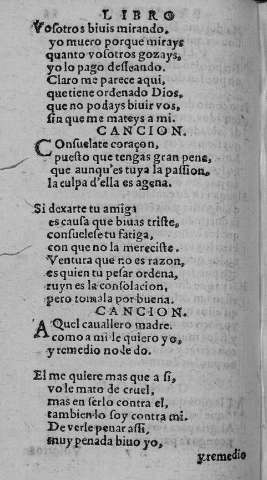 LIBRO
Vosotros biuis mirando.
yo muero porque mirays
quanto vosotros gozays,
yo lo pago desseando.
Claro me parece aqui,
que tiene ordenado Dios,
que no podays biuir vos,
sin que me mateys a mi.
CANCION.
COnsuelate coraçon,
puesto que tengas gran pena,
que aunqu'es tuya la passion,
la culpa d'ella es agena.
Si dexarte tu amiga
es causa que biuas triste,
consuelese tu fatiga,
con que no la mereciste.
Ventura que no es razon,
es quien tu pesar ordena,
ruyn es la consolacion,
pero tomala por buena.
CANCION.
AQuel cauallero madre.
como a mi le quiero yo,
y remedio no le do.
El me quiere mas que a si,
yo le mato de cruel,
mas en serlo contra el,
tambien lo soy contra mi.
De verle penar assi,
muy penada biuo yo,
y reme dio